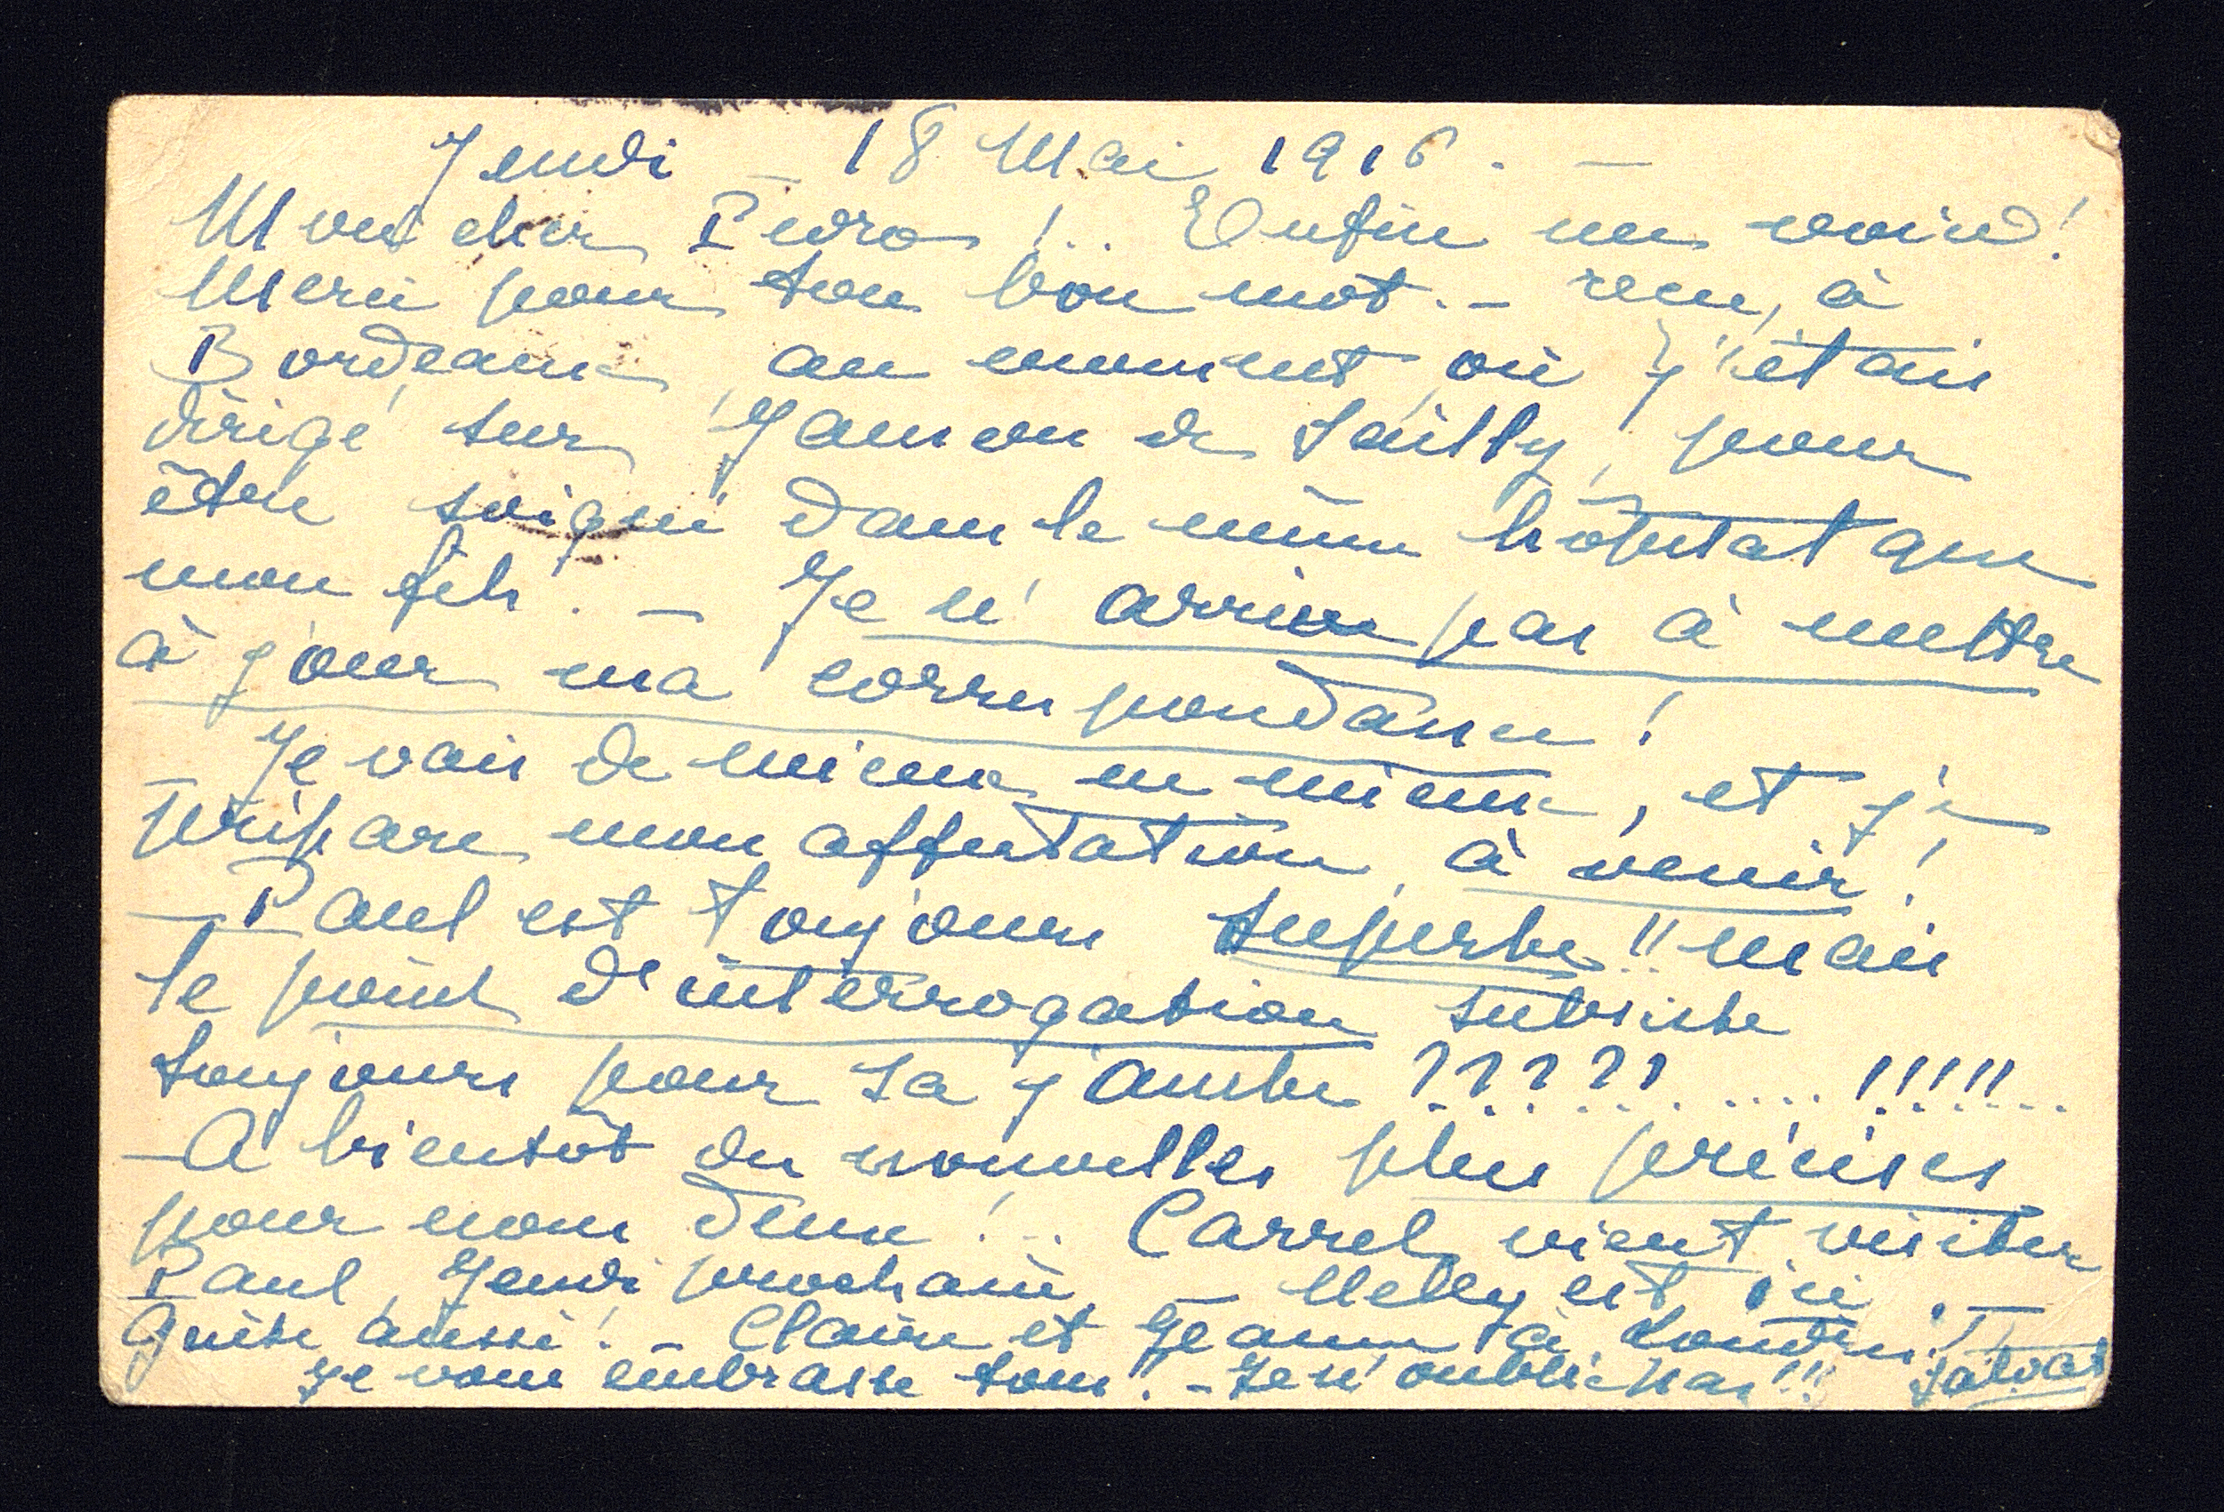 Jeudi – 18 Mai 1916. –
Mon cher Pedro !.. Enfin un !
Merci pour ton bon mot. – reçu, à
Bordeaux, au moment, où j'étais
dirigé, sur Janson de Sailly, pour
être soigné dans le même hôpital que
mon fils. – Je n'arrive pas à mettre
à jour ma correspondance !
– Je vais de mieux en mieux, et je
prépare mon affectation, à venir !
– Paul est toujours superbe !! mais
le point d'interrogation subsiste
toujours pour sa jambe ?????..... !!!!!..
– A bientôt des nouvelles plus précises
pour nous deux !.. Carrel, vient visiter
Paul, Jeudi prochain – est ici. –
aussi ! – Claire et Jeanne à Londres !
Je vous embrasse tous ! – Je n'oublie pas !!